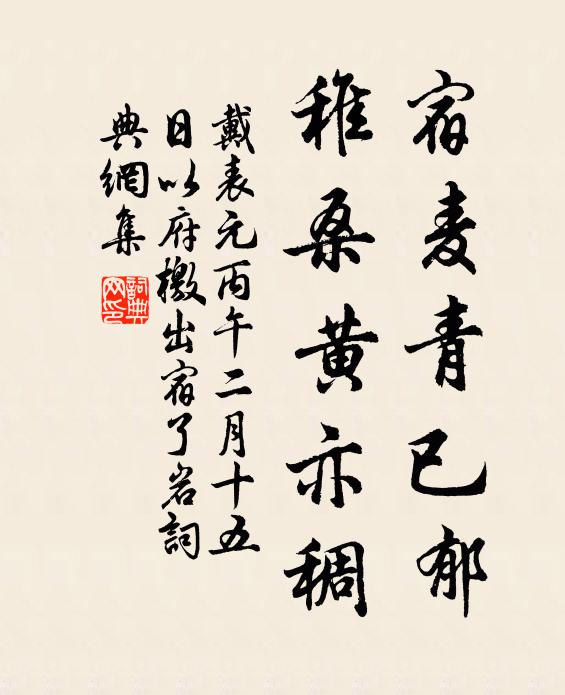 宿麦青已郁
稚桑黄亦稠
戴表元丙午二月十五
日以府檄出宿了岩詞
典網集
詞典网印